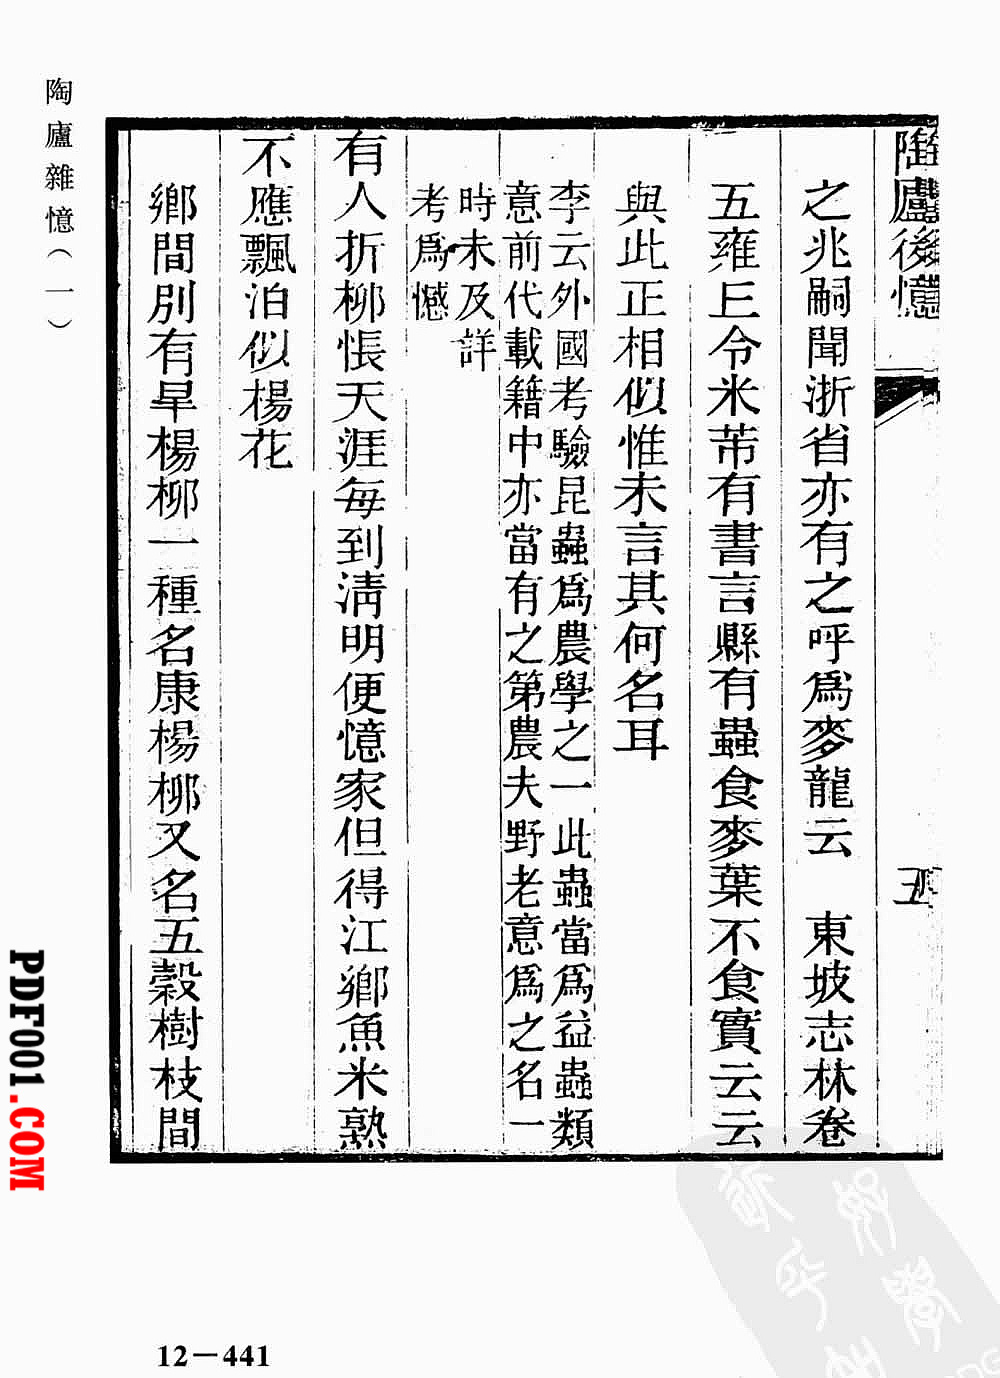 陶廬雜憶（一）
陶廬後憶
五
之兆嗣聞浙省亦有之呼爲麥龍云　東坡志林卷
五雍丘令米芾有書言縣有蟲食麥葉不食實云云
與此正相似惟未言其何名耳
李云外國考驗昆蟲爲農學之一此蟲當爲益蟲類
意前代載籍中亦當有之第農夫野老意爲之名一
時未及詳
考爲憾
有人折柳悵天涯每到淸明便憶家但得江鄉魚米熟
不應飄泊似楊花
鄉間別有旱楊柳一種名康楊柳又名五穀樹枝間
12－441
PDF001.COM